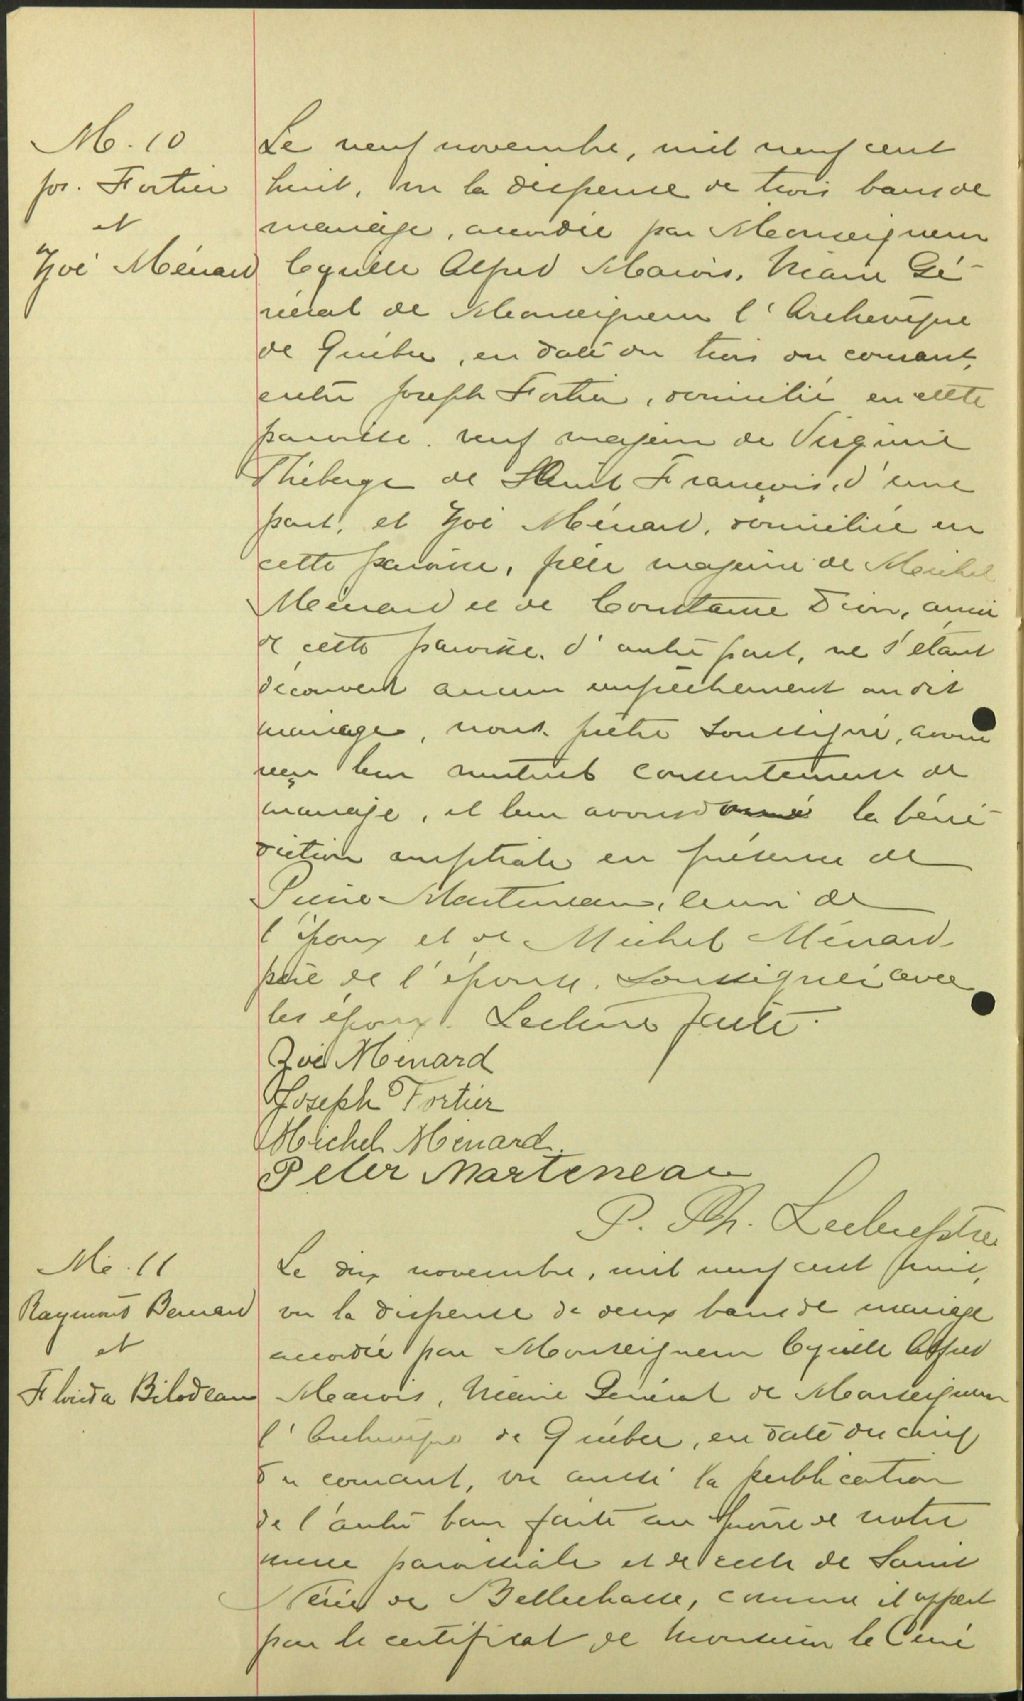 M. 10
Jos. Fortier
et
Zoé Ménard
Le neuf novembre, mil neuf cent
huit, vu la dispense de trois bans de
mariage, accordée par Monseigneur
Cyrille Alfred Marois, Vicaire Gé-
néral de Monseigneur l'Archevêque
de Québec, en date du trois du courant,
entre Joseph Fortier, domicilié en cette
paroisse, veuf majeur de Virginie
Théberge de Saint François, d'une
part, et Zoé Ménard, domiciliée en
cette paroisse, fille majeure de Michel
Ménard et de Constance Dion, aussi
de cette paroisse, d'autre part, ne s'étant
découvert aucun empêchement au dit
mariage, nous, prêtre soussigné, avons
reçu leur mutuel consentement de
mariage, et leur avons donné la béné-
diction nuptiale en présence de
Pierre Martineau, de
l'époux et de Michel Ménard,
père de l'épouse, soussignés avec
les époux. Lecture faite.
Zoé Ménard
Joseph Fortier
Michel Menard
Peter Marteneau
P. Ph. Ptre
M. 11
Raymond Bernard
et
Florida Bilodeau
Le dix novembre, mil neuf cent huit,
vu la dispense de deux bans de mariage
accordée par Monseigneur Cyrille Alfred
Marois, Vicaire Général de Monseigneur
l'Archevêque de Québec, en date du cinq
du courant, vu aussi la publication
de l'autre ban faite au prône de notre
messe paroissiale et de celle de Saint
Nérée de Bellechasse, comme il appert
par le certificat de Monsieur le Curé